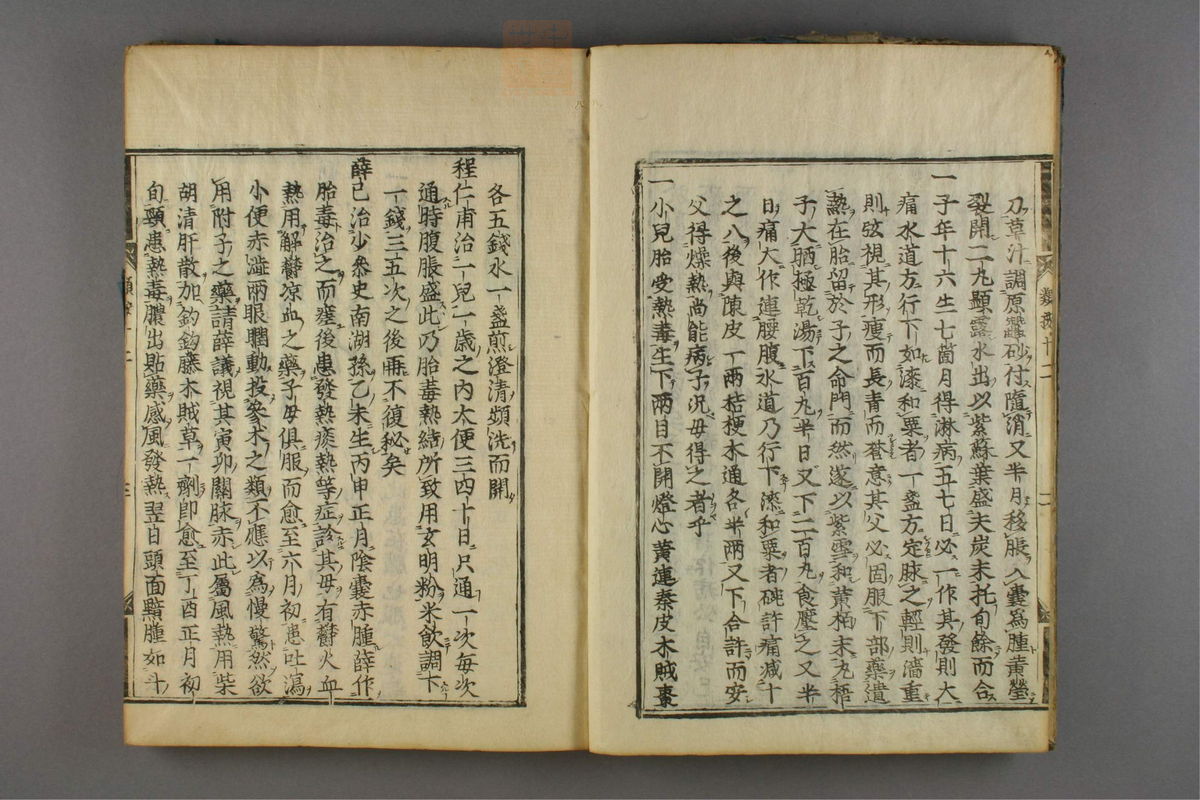 刀草汁調原蠶砂付隨消又半月移脹入囊爲腫黃瑩
裂開二丸顯露水出以紫蘇葉盛夫炭末托旬餘而合
一子年十六生七箇月得淋病五七日必一作其發則大
痛水道方行下如漆和粟者一盞方定脉之輕則濇重
則弦視其形瘦而長青而蒼意其父必固服下部藥遺
熱在胎留於子之命門而然遂以紫雪和黃栢末丸梧
子大晒極乾湯下百丸半日又下二百丸食壓之又半
日痛大作連腰腹水道乃行下漆和粟者碗許痛减十
之八後與陳皮一兩桔梗木通各半兩又下合許而安
父得燥熱尚能病子況母得之者乎
一小兒胎受熱毒生下兩目不開燈心黃連秦皮木賊棗
各五錢水一盞煎澄清頻洗而開
程仁甫治一兒一歲之內大便三四十日只通一次每次
通時腹脹盛此乃胎毒熱結所致用玄明粉米飲調下
一錢三五次之後再不復秘矣
薛己治少參史南湖孫乙未生丙申正月陰囊赤腫薛作
胎毒治之而瘥後患發熱痰熱等症診其母有鬱火血
熱用解鬱凉血之藥子母俱服而愈至六月初患吐瀉
小便赤澁兩眼瞤動投參朮之類不應以爲慢驚然欲
用附子之藥請薛議視其寅卯關脉赤此屬風熱用柴
胡清肝散加釣鈎藤木賊草一劑卽愈至丁酉正月初
旬頸患熱毒膿出貼藥感風發熱翌日頭面黯腫如斗